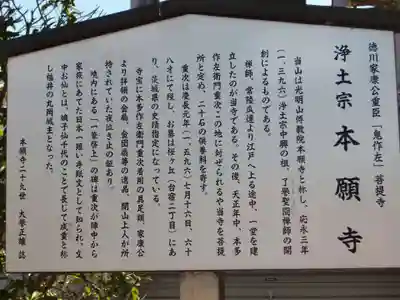 徳川家康公重臣「鬼作左」菩提寺
浄土宗 本願寺
当山は光明山佛教院本願寺と称し、応永三年
(一、三九六)浄土宗中興の祖、了誉聖冏禅師の開
創によるものである。
禅師、常陸瓜連より江戸へ上る途中、一堂を建
立したのが当寺である。その後、天正年中、本多
作左衛門重次この地に封ぜられるや当寺を菩提
所と定め、二十石の供養料を寄す。
重次は慶長元年(一、五九六)七月十六日、六十
八才にて歿し、お墓は桜ヶ丘(台宿二丁目)にあ
り、茨城県の史跡指定になっている。
寺宝に本多作左衛門重次着用の具足類、家康公
より拝領の金扇、金団扇等の遺品、開山上人が所
持されていた夜泣き止の鉦あり。
境内にある「一筆啓上」の碑は重次が陣中から
家族にあてた日本一短い手紙文として知られ、文
中お仙とは、嫡子仙千代のことで長じて成重と称
し福井の丸岡城主となった。
本願寺二十九世 大厚正雄 誌